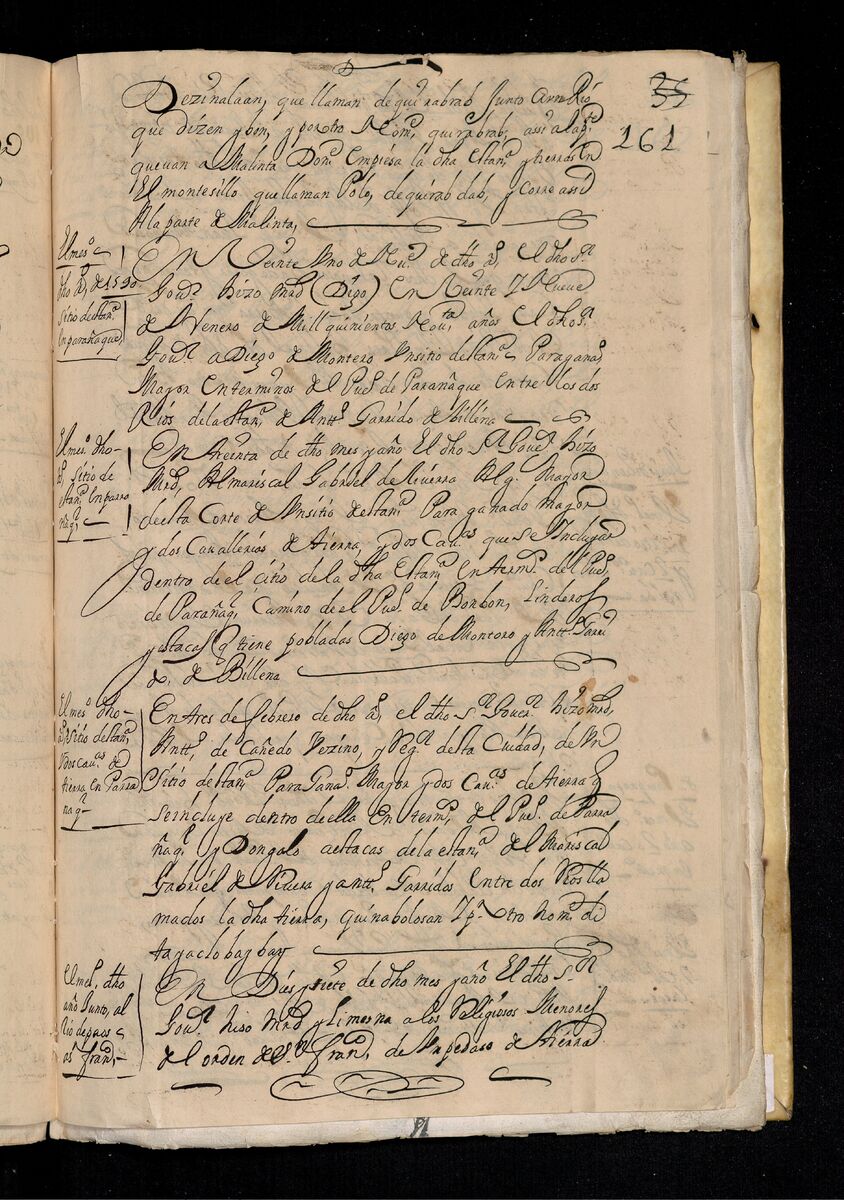 35
161
Dezinalaan, que llaman de quirabrab Junto a vn Rio
que dizen ybon, y por otro Nom.e quirabrab, assi a la p.te
que van a Malinta Don.e Empiesa la dha Estan.a y tierras En
El montesillo que llaman Polo, de quirab dab, y corre assi
A la parte de Malinta,
El mes.o
dho a.o, de 1590
sitio de stan.a
En parañaque,
En Veinte Vno de de dho a.o, El dho s.r
Gou.or hizo mrd (Digo) En Veinte y Nueve
de Henero de Mill quinientos Nou.ta años El dho s.r
Gou.or a Diego de Montoro Vn sitio de stan.a Para gana.o
Mayor En terminos del Pue.o de Parañaque Entre los dos
Rios de la stan.a de Antt.o Garrido de Billena
El mes.o dho
a.o, sitio de
estan.a En parra
ñaq.e
En treinta de dho mes y año El dho s.r Gou.or hizo
Mrd, Al mariscal Gabriel de Riuera Alg.l Mayor
de esta Corte de Vn sitio de stan.a Para ganado mayor
y dos Cauallerias de tierra, y dos Cau.as que se Incluyan
dentro de el citio de la dha Estan.a En term.o del Pue.o
de Parañaq.e Camino de el Pue.o de Bonbon, Linderos
y estacas q tiene pobladas Diego de Montoro y Antt.o Garri
do, de Billena
El mes.o dho
a.o sitio de stan.a
y dos cau.as de
tierra en Parra
naq.e
En tres de febrero de dho a.o, el dho s.r Gouer.or hizo Mrd,
Antt.o, de Cañedo Vezino, y Reg.or de sta Ciudad, de Vn
Sitio de stan.a Para Gana.o Mayor y dos Cau.as de tierra q
se incluye dentro de ella En term.o del Pue.o de Parra
ñaq.e y Dongalo a estacas de la estan.a del Mariscal
Gabriel de Riuera y antt.o Garridos Entre dos Rios lla
mados la dha tierra, quinabolosan y p.r otro Nom.e de
tayaclobaybay
El mes.o dho
año Junto, al
Rio de
os fran.co
En Dies y siete de dho mes y año El dho s.r
Gou.or hiso Mrd y Limosna a los Religiosos Menores
del orden de s.n fran.co, de Vn pedaso de tierra